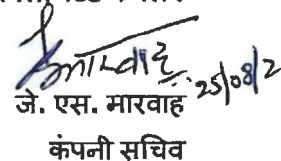 25/08/2
जे. एस. मारवाह
कंपनी सचिव